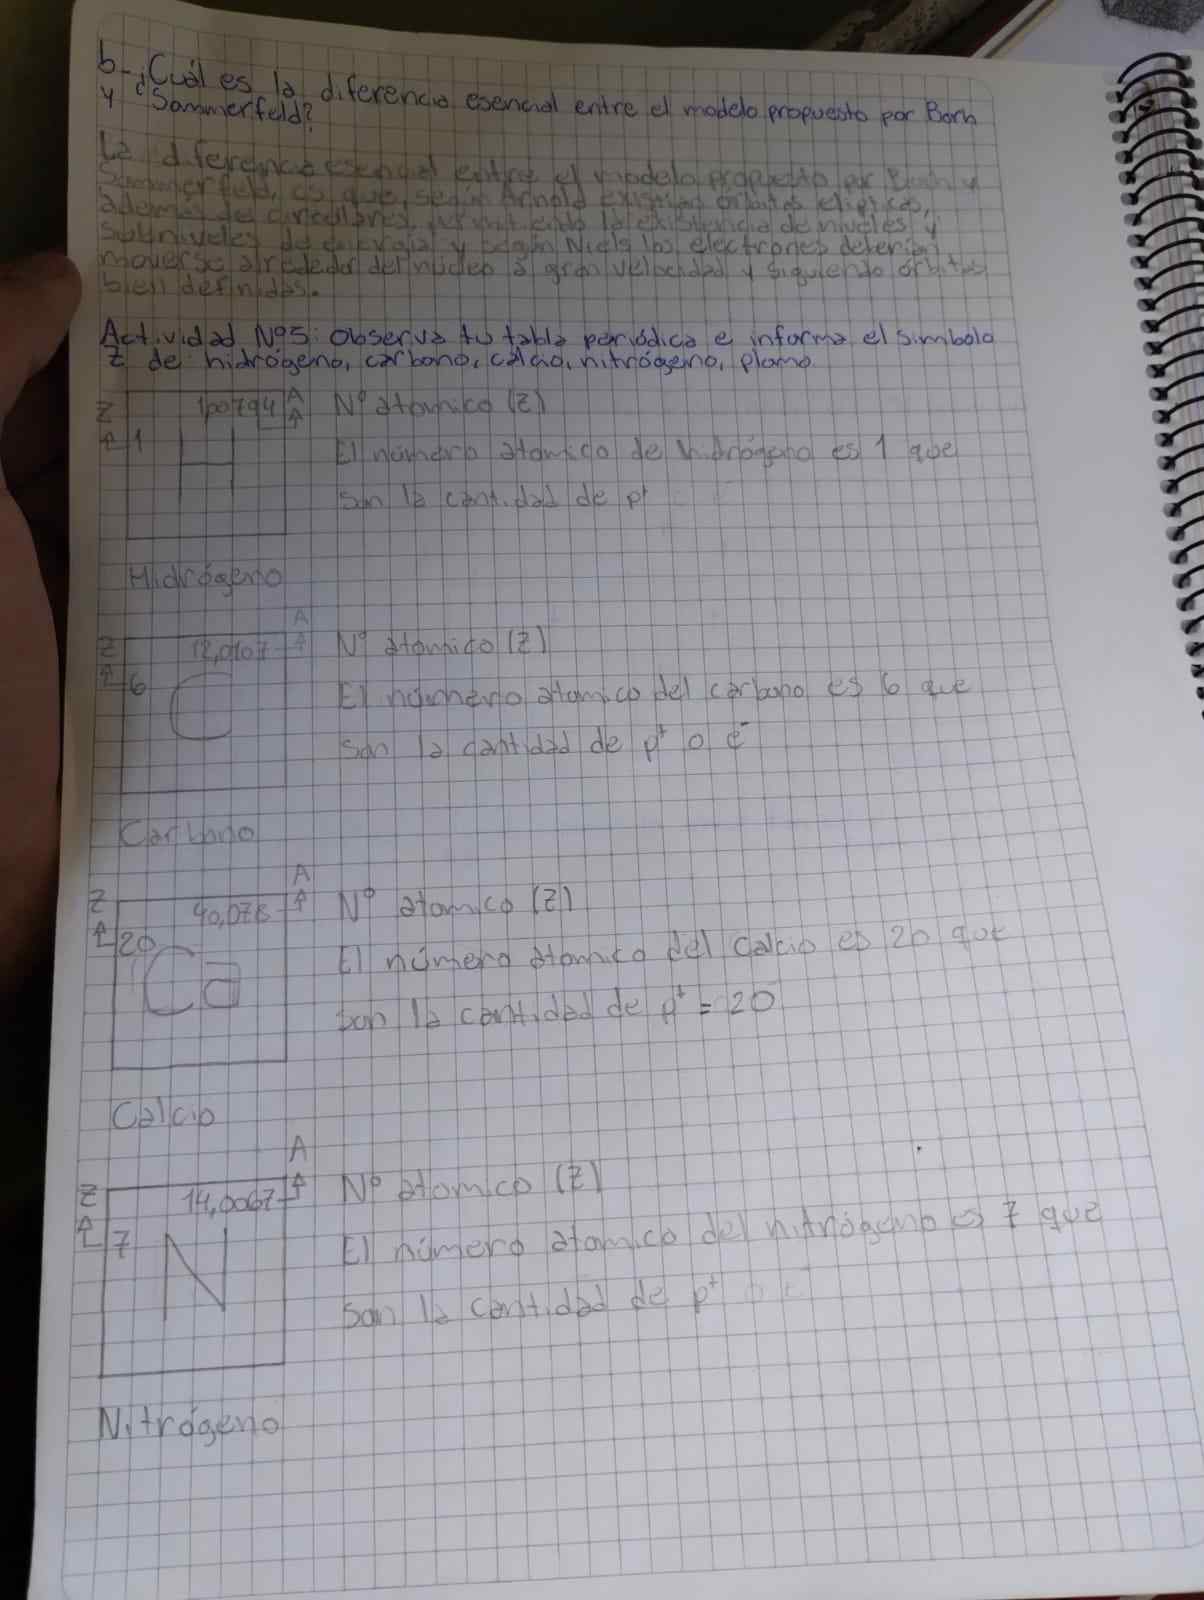 b- ¿Cuál es la diferencia esencial entre el modelo propuesto por Borh
y Sommerfeld?
La diferencia esencial entre el modelo propuesto por Borh y
Sommerfeld, es que, según Arnold existían orbitas elípticas,
además de circulares, permitiendo la existencia de niveles y
subniveles de energía y según Niels los electrones deberían
moverse alrededor del núcleo a gran velocidad y siguiendo órbitas
bien definidas.
Actividad Nº5: Observa tu tabla periódica e informa el símbolo
Z de: hidrógeno, carbono, calcio, nitrógeno, plomo.
Z 1,00794 A Nº atomico (Z)
1 H El número atomico de hidrógeno es 1 que
son la cantidad de p+
Hidrógeno
A
Z 12,0107 Nº atomico (Z)
6 C El número atomico del carbono es 6 que
son la cantidad de p+ o e-
Carbono
A
Z 40,078 Nº atomico (Z)
20 Ca El número atomico del calcio es 20 que
son la cantidad de p+ = 20
Calcio
A
Z 14,0067 Nº atomico (Z)
7 N El número atomico del nitrógeno es 7 que
son la cantidad de p+
Nitrógeno